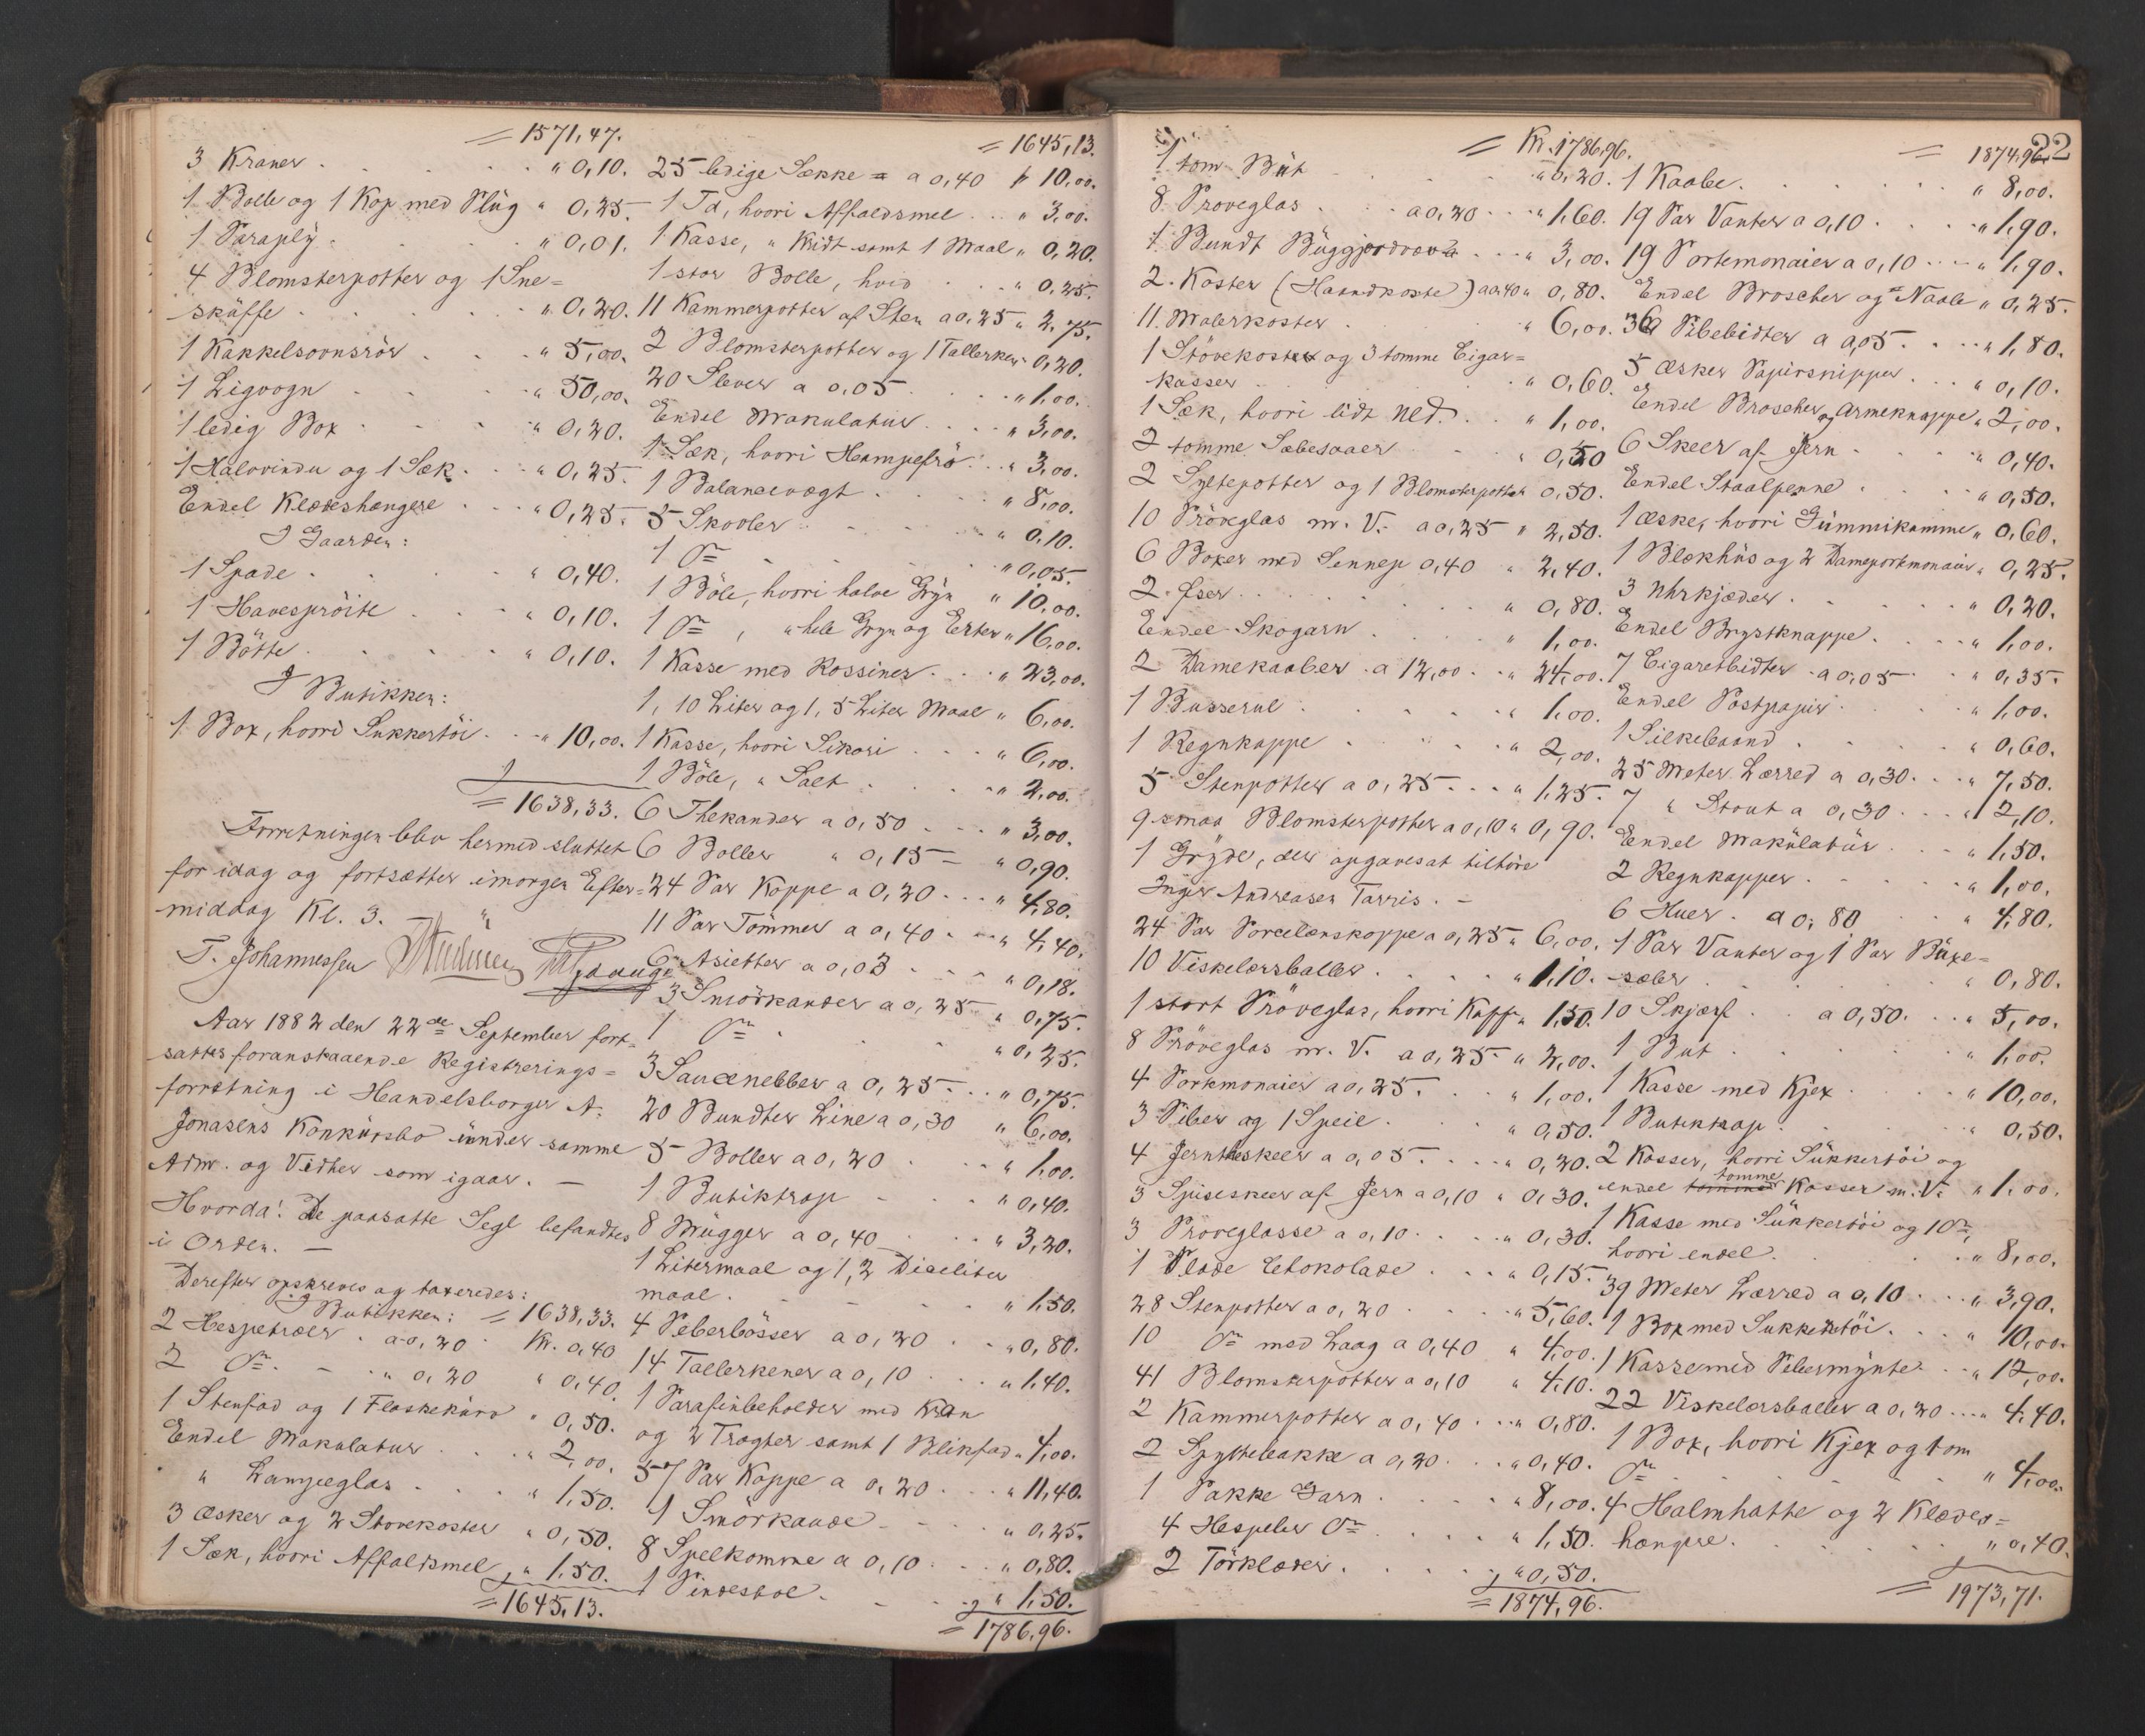 = 1571,47.
3 Kraner . . . " 0,10.
1 Bolle og 1 Kop med Plüg " 0,25.
1 Paraply . . . " 0,01.
4 Blomsterpotter og 1 Sne=
skuffe . . . " 0,20.
1 Kakkelsovnsrör . . . " 5,00.
1 Ligvogn . . . " 50,00.
1 ledig Box . . . " 0,20.
1 Halvvindu og 1 Sæk . . . " 0,25.
Endel Klædeshengere . . . " 0,25.
I Gaarden:
1 Spade . . . " 0,40.
1 Havespröite . . . " 0,10.
1 Bötte . . . " 0,10.
I Butikken:
1 Box, hvori Sukkertöi . . . " 10,00.
= 1638,33.
Forretningen blev hermed sluttet
for idag og fortsætter imorgen Efter=
middag Kl. 3. —
T. Johannessen
Aar 1882 den 22de September fort=
sattes foranstaaende Registrerings=
forretning i Handelsborger A.
Jonasens Konkürsbo ünder samme
Adm. og Vidner som igaar. —
Hvorda! De paasatte Segl befandtes
i Orden. —
Derefter opskreves og taxeredes:
I Butikken: = 1638,33.
2 Hespetræer . a 0,20 Kr. 0,40
2 Do . — " 0,20 " 0,40.
1 Stenfad og 1 Flaskekürv " 0,50.
Endel Makulatur . . . " 2,00.
" Lampeglas . . . " 1,50.
3 Æsker og 2 Stovekoster " 0,50.
1 Sæk, hvori Affaldsmel " 1,50.
= 1645,13.
= 1645,13.
25 ledige Sække a 0,40 " 10,00.
1 Td, hvori Affaldsmel . . " 3,00.
1 Kasse, " Kridt samt 1 Maal " 0,20.
1 stor Bolle, hvid . . . " 0,25.
11 Kammerpotter af Sten a 0,25 " 2,75.
2 Blomsterpotter og 1 Tallerken " 0,20.
20 Slever a 0,05 . . . " 1,00.
Endel Makulatur . . . " 3,00.
1 Sæk, hvori Hampefrö . . " 3,00.
1 Balancevægt . . . " 8,00.
5 Skovler . . . " 0,10.
1 Do . . . " 0,05.
1 Böle, hvori halve Gryn " 10,00.
1 Do , " hele Gryn og Erter " 16,00.
1 Kasse med Rossiner . . . " 23,00.
1, 10 Liter og 1, 5 Liter Maal " 6,00.
1 Kasse, hvori Sikori . . " 6,00.
1 Böle, " Salt . . . " 2,00.
6 Thekander a 0,50 . . . " 3,00.
6 Boller " 0,15 — " 0,90.
24 Par Koppe a 0,20 . . . " 4,80.
11 Par Tömmer a 0,40 . . " 4,40.
6 Asietter a 0,03 . . . " 0,18.
3 Smörkander a 0,25 " 0,75.
1 Do . . . " 0,25.
3 Saucenebber a 0,25 . . " 0,75.
20 Bundter Line a 0,30 " 6,00.
5 Boller a 0,20 . . . " 1,00.
1 Butiktrap . . . " 0,40.
8 Mügger a 0,40 . . . " 3,20.
1 Litermaal og 1, 2 Diceliter
maal . . . " 1,50.
4 Peberbösser a 0,20 . . " 0,80.
14 Tallerkener a 0,10 . . . " 1,40.
1 Parafinbeholder med Kran
og 2 Tragter samt 1 Blikfad " 4,00.
57 Par Koppe a 0,20 . . . " 11,40.
1 Smörkande . . . " 0,25.
8 Spelkomme a 0,10 . . . " 0,80.
1 Pindestol . . . " 1,50.
= 1786,96.
22
= Kr. 1786,96.
1 tom Büt . . . " 0,20.
8 Proveglas . . a 0,20 . . . " 1,60.
1 Bundt . . . " 3,00.
2 Koster (Haandkoste) a 0,40 " 0,80.
11 Malerkoster . . . " 6,00.
1 Stövekost og 3 tomme Cigar=
kasser . . . " 0,60.
1 Sæk, hvori lidt Uld . . . " 1,00.
2 tomme Sæbesaaer . . . " 0,50
2 Syltepotter og 1 Blomsterpotte " 0,50.
10 Pröveglas m. V. a 0,25 " 2,50.
6 Boxer med Sennep 0,40 " 2,40.
2 Øser . . . " 0,80.
Endel Skogarn . . . " 1,00.
2 Damekaaber a 12,00 . . " 24,00.
1 Busserul . . . " 1,00.
1 Regnkappe . . . " 2,00.
5 Stenpotter a 0,25 . . . " 1,25.
9 smaa Blomsterpotter a 0,10 " 0,90.
1 Gryde, der opgavesat tilhöre
Inger Andreasen Tarris . —
24 Par Porcelænskoppe a 0,25 " 6,00.
10 Viskelærsballer . . . " 1,10.
1 stort Pröveglas, hvori Kaff " 1,50.
8 Pröveglas m. V. a 0,25 " 2,00.
4 Portmonaier a 0,25 . . " 1,00.
3 Piber og 1 Speil . . . " 0,50.
4 Jerntheskeer a 0,05 . . . " 0,20.
3 Spiseskeer af Jern a 0,10 " 0,30.
3 Proveglasse a 0,10 . . . " 0,30.
1 Plade Chokolade . . . " 0,15.
28 Stenpotter a 0,20 . . . " 5,60.
10 Do med Laag a 0,40 " 4,00.
41 Blomsterpotter a 0,10 " 4,10.
2 Kammerpotter a 0,40 . . . " 0,80.
2 Spyttebakke a 0,20 . . " 0,40.
1 Pakke Garn . . . " 8,00.
4 Hespeler Do . . . " 1,50.
2 Törklæder . . . " 0,50.
= 1874,96.
= 1874,96.
1 Kaabe . . . " 8,00.
19 Par Vanter a 0,10 . . . " 1,90.
19 Portemonaier a 0,10 . . . " 1,90.
Endel Broscher og Naale " 0,25.
36 Pibebidter a 0,05 . . . " 1,80.
5 Æsker Papirsnipper . . . " 0,10.
Endel Broscher og Armeknappe " 2,00.
6 Skeer af Jern . . . " 0,40.
Endel Staalpenne . . . " 0,50.
1 Æske, hvori Gümmikamme " 0,60.
1 Blækhüs og 2 Dameportmonaier " 0,25.
3 Uhrkjæder . . . " 0,20.
Endel Brystknappe . . . " 1,00.
7 Cigaretbidter a 0,05 . . " 0,35.
Endel Postpapir . . . " 1,00.
1 Silkebaand . . . " 0,60.
25 Meter Lærred a 0,30 . . . " 7,50.
7 " Stout a 0,30 . . . " 2,10.
Endel Makülatür . . . " 1,50.
2 Regnkapper . . . " 1,00.
6 Huer . a 0,80 . . " 4,80.
1 Par Vanter og 1 Par Büxe=
sæler . . . " 0,80.
10 Skjærf . . a 0,50 . . . " 5,00.
1 But . . . " 1,00.
1 Kasse med Kjex . . . " 10,00.
1 Butiktrap . . . " 0,50.
2 Kasser, hvori Sükkertöi og
endel tomme Kasser m. V. " 1,00.
1 Kasse med Sükkertöi og 1 Do,
hvori endel . . . " 8,00.
39 Meter Lærred a 0,10 . . . " 3,90.
1 Box med Sukkertöi . . . " 10,00.
1 Kasse med Pebermynte . . " 12,00.
22 Viskelærsballer a 0,20 . . . " 4,40.
1 Box, hvori Kjex og tom
Do . . . " 4,00.
4 Halmhatte og 2 Klædes=
hængere . . . " 0,40.
= 1973,71.